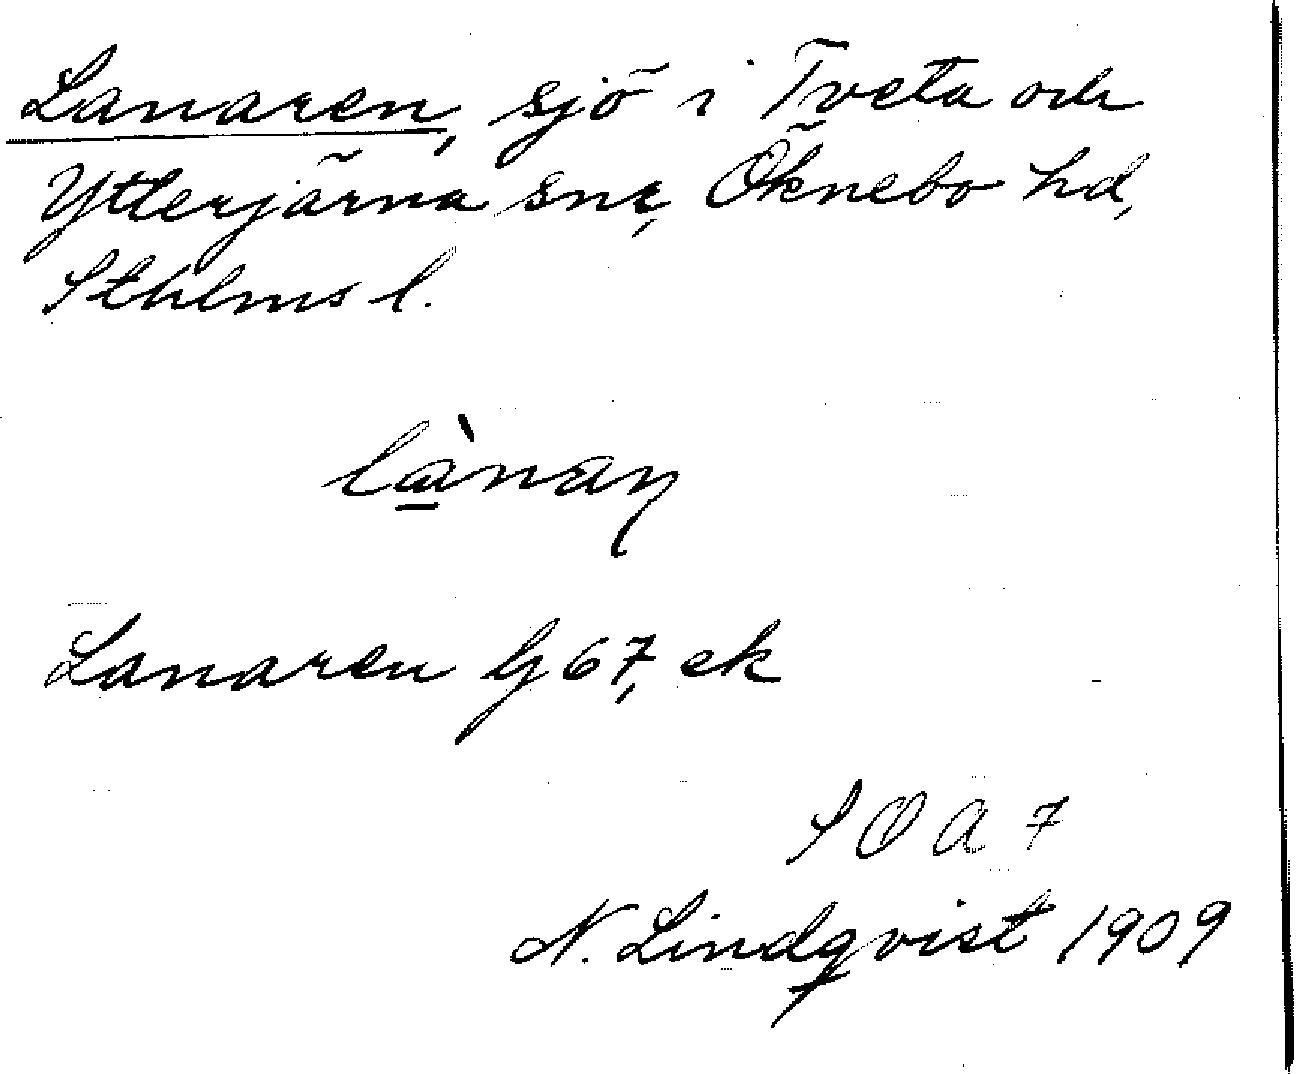 Lanaren, sjö i Tveta och
Ytterjärna snr, Öknebo hd,
Sthlms l.
lànaņ
Lanaren Gj 67, ek
SOA 7
N. Lindqvist 1909